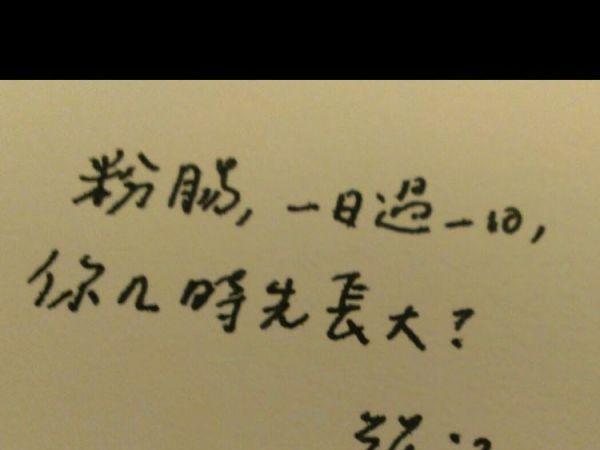 粉腸, 一日過一日,
你几時先長大?